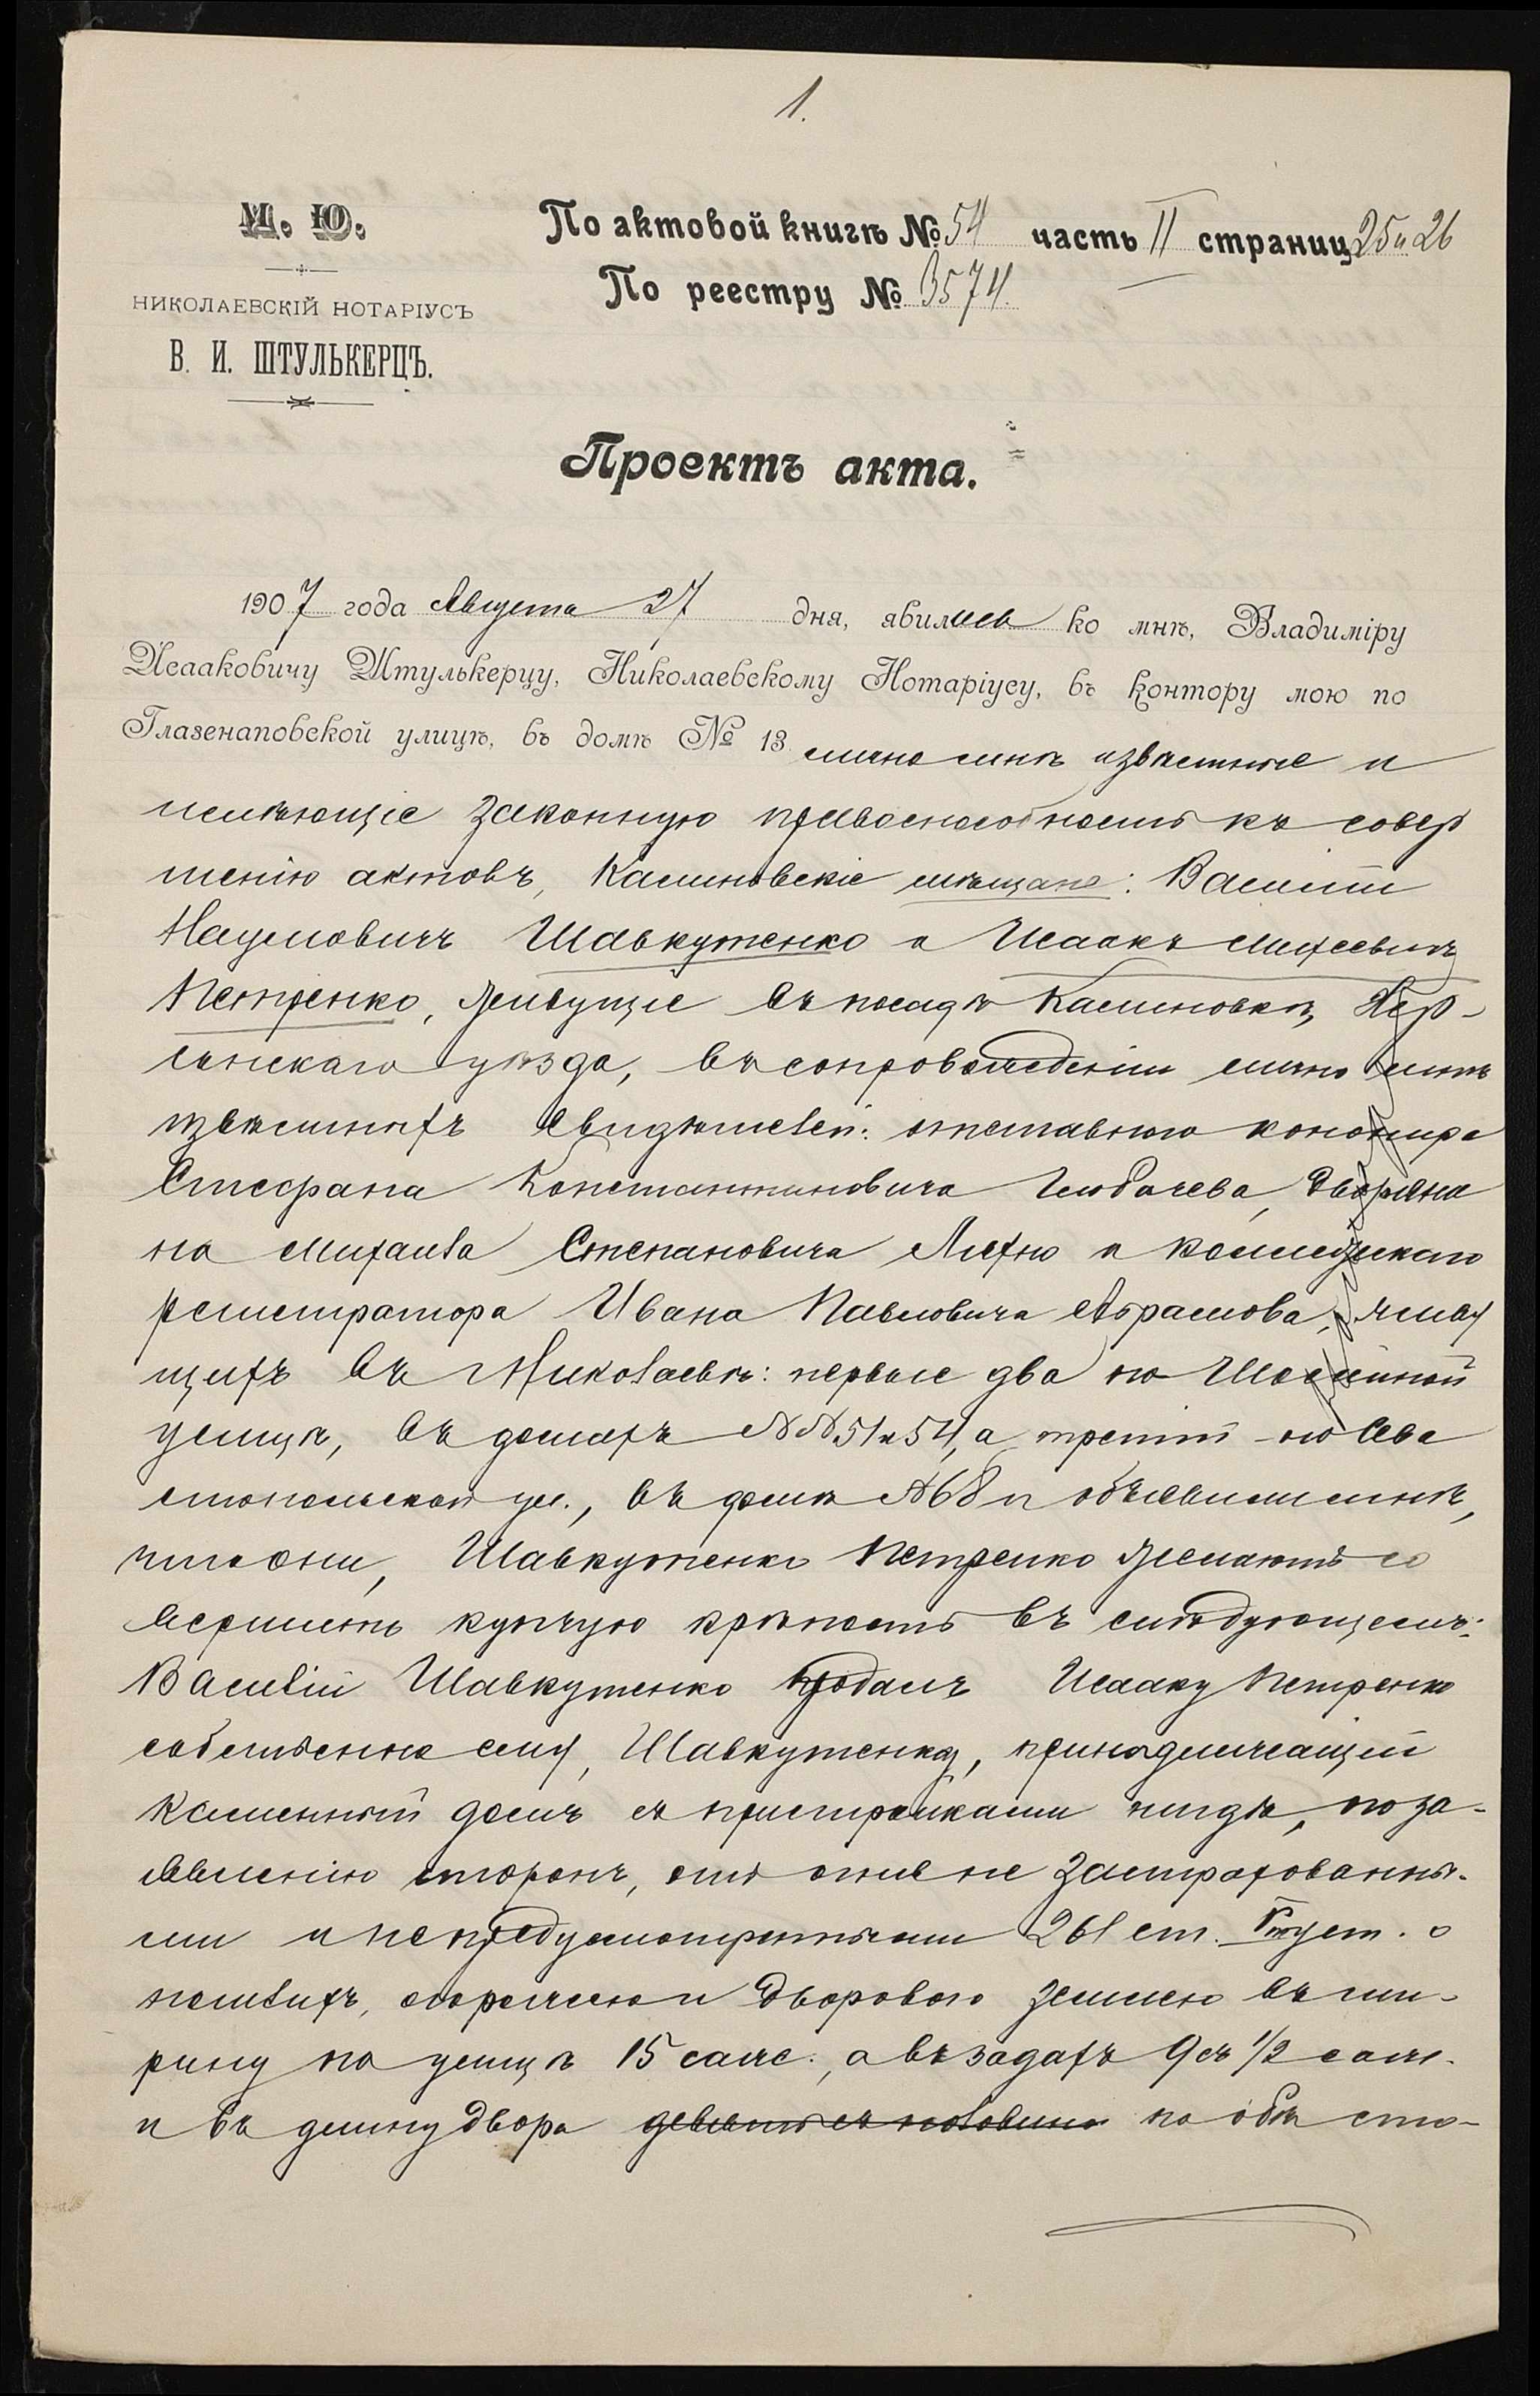 1.
М. Ю.
По актовой книгѣ № 54 часть II страниц 25 и 26
По реестру № 3574.
НИКОЛАЕВСКІЙ НОТАРІУСЪ
В. И. ШТУЛЬКЕРЦЪ.
Проектъ акта.
1907 года Августа 27 дня, явились ко мнѣ, Владиміру
Исааковичу Штулькерцу, Николаевскому Нотаріусу, въ контору мою по
Глазенаповской улицѣ, въ домѣ № 13 лично мнѣ извѣстные и
имѣющіе законную правоспособность къ совер
шенію актовъ, Калиновскіе мѣщане: Василій
Наумовичъ Шавкутенко и Исаакъ Михеевичъ
Петренко, живущіе въ посадѣ Калиновкѣ, Хер-
сонскаго уѣзда, въ сопровожденіи лично мнѣ
извѣстныхъ свидѣтелей: отставного
Стефана Константиновича дворяни
на Михаила Степановича Лихно и коллежскаго
регистратора Ивана Павловича Абрамова, живу
щихъ въ Николаевѣ: первые два по
улицѣ, въ домахъ №№ 51 и 54, а третій по Сева
стопольской ул., въ домѣ № 68 и объявили мнѣ,
что они, Шавкутенко Петренко желаютъ со
вершить купчую крѣпость въ слѣдующемъ:
Василій Шавкутенко продалъ Исааку Петренко
собственно ему, Шавкутенку, принадлежащій
каменный домъ съ пристройками нигдѣ, по за-
явленію сторонъ, отъ огня не застрахованны-
ми и непредусмотренными 261 ст. уст. о
пошлинахъ, огорожею и дворовою землею въ ши-
рину по улицѣ 15 саж., а въ задахъ 9 съ 1/2 саж.
и въ длину двора девять съ половиною по обѣ сто-